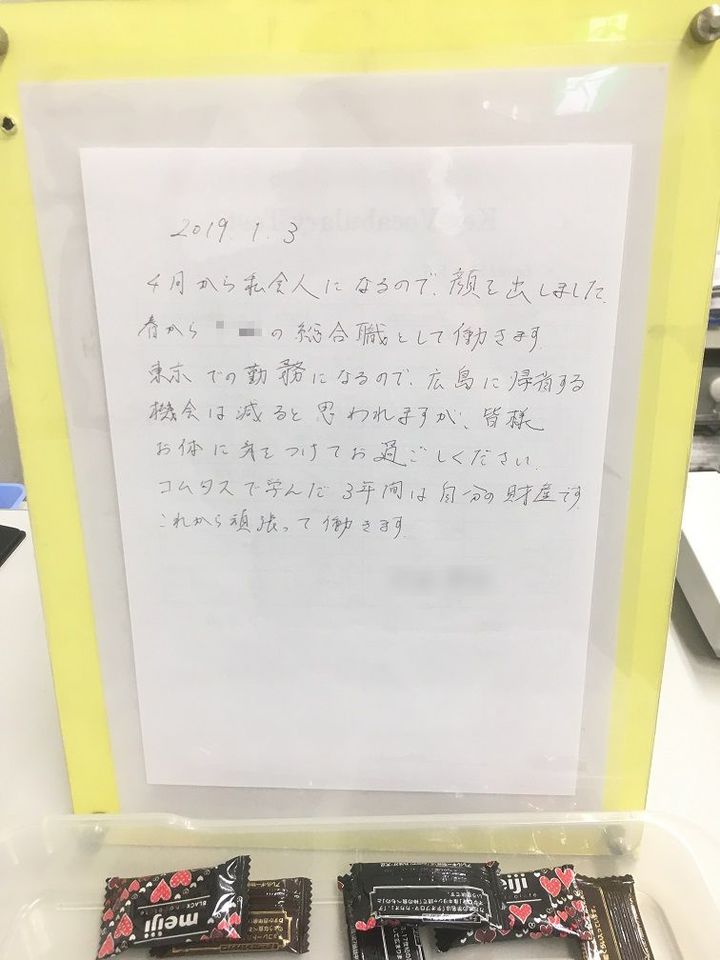 2019. 1. 3
4月から社会人になるので、顔を出しました。
春から の総合職として働きます
東京での勤務になるので、広島に帰省する
機会は減ると思われますが、皆様
お体に気をつけてお過ごしください。
コムタスで学んだ3年間は自分の財産です
これから頑張って働きます。
meiji
BLACK
meiji